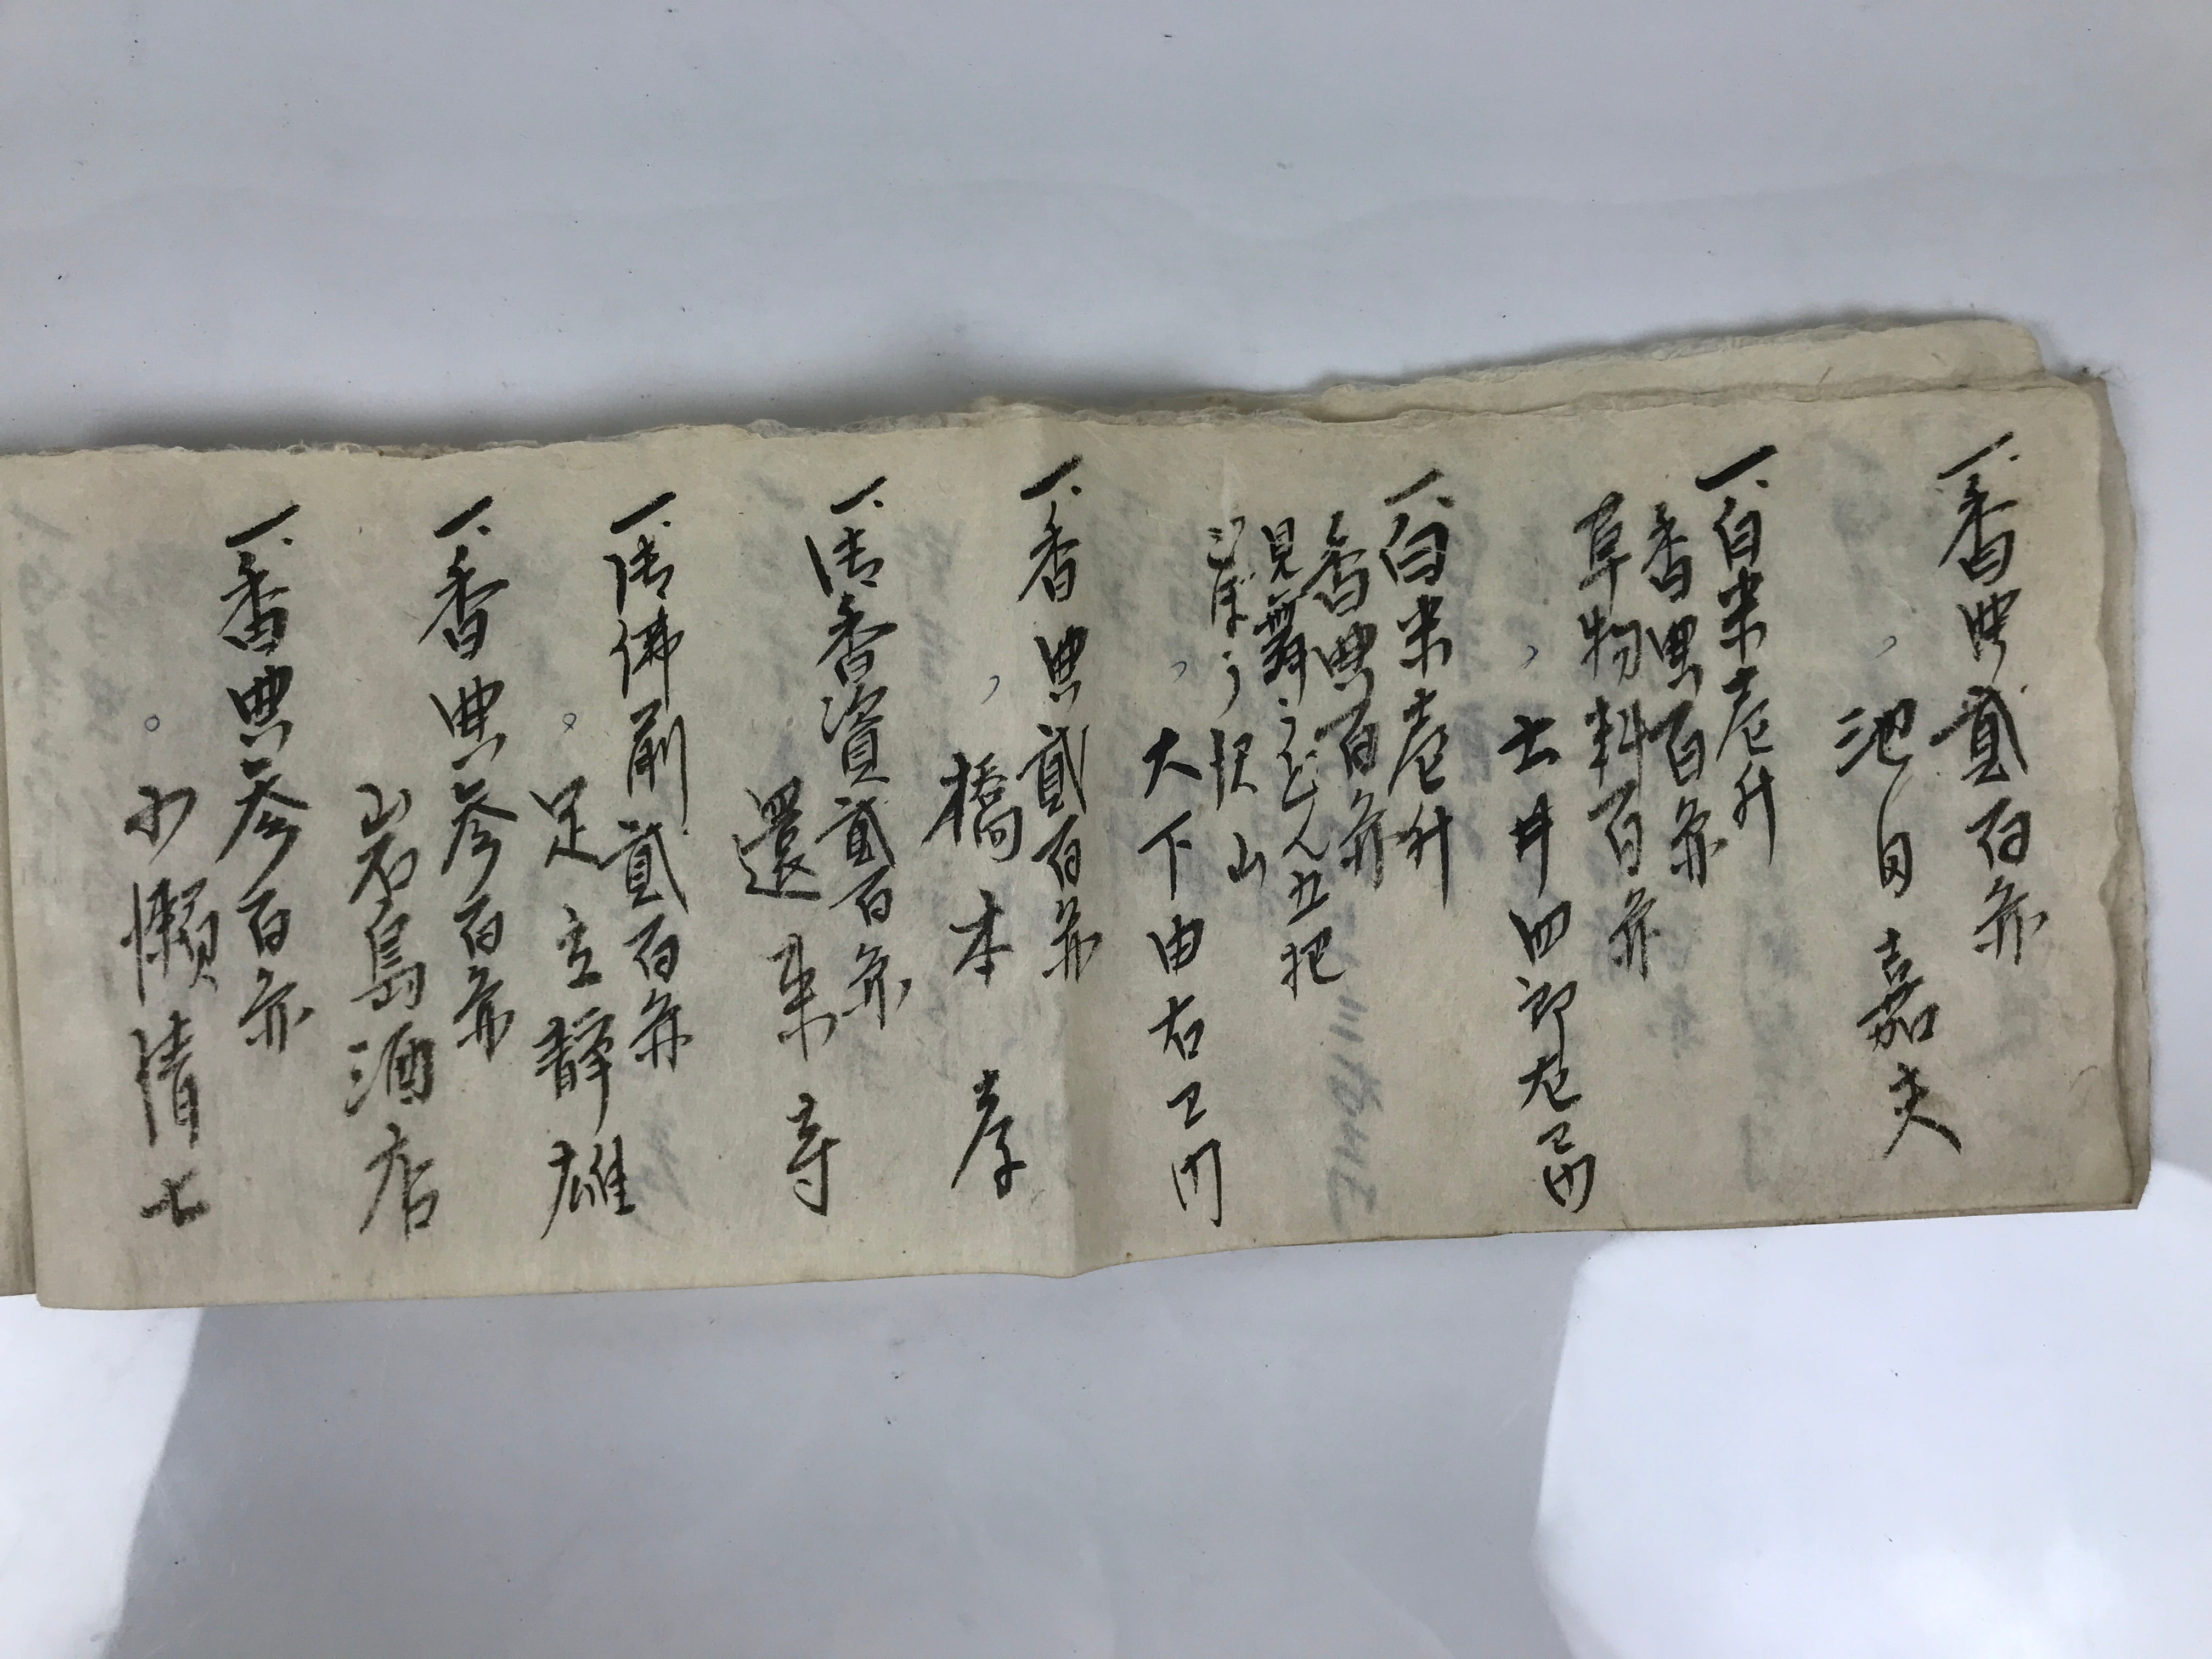 一、香典貳百円
池田嘉夫
一、白米壱升
香典百円
草物料百円
土井四郎左ヱ門
一、白米壱升
香典百円
見舞うどん五把
沢山
大下由右ヱ門
一、香典貳百円
橋本孝
一、御香資貳百円
還来寺
一、御佛前貳百円
足立静雄
一、香典参百円
岩島酒店
一、香典参百円
小瀬清七